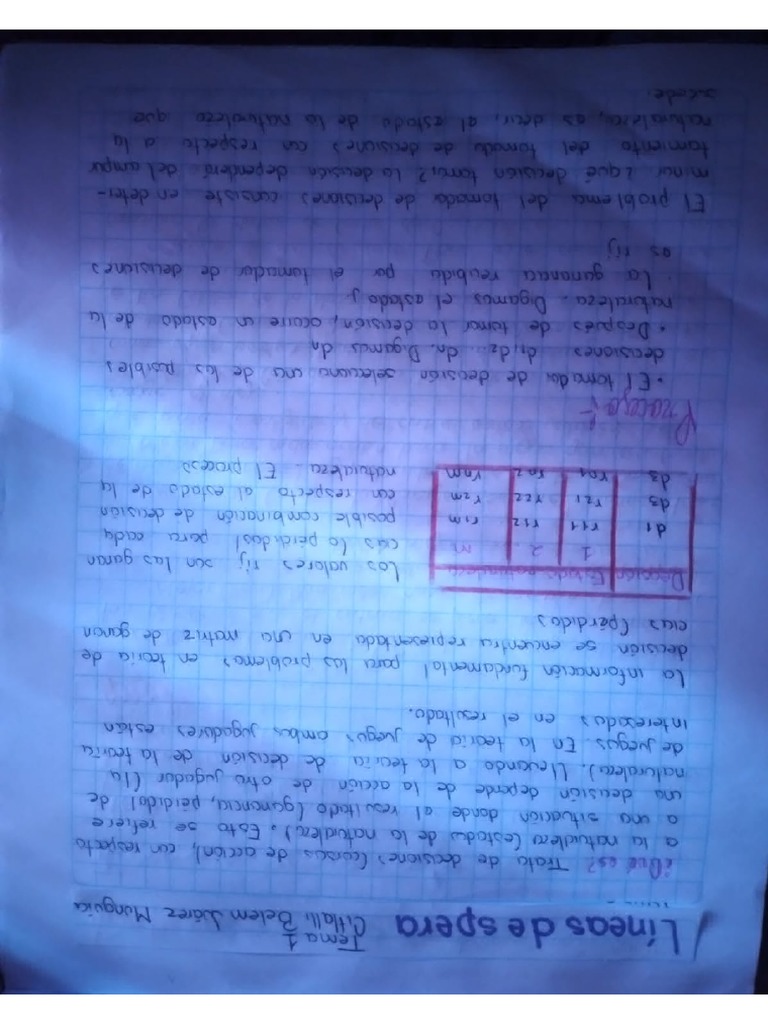 Líneas de spera
Tema 1
Citlalli Belem Juárez Munguia
¿Qué es? Trata de decisiones (cursos de acción), con respecto
a la naturaleza (estados de la naturaleza). Esto se refiere
a una situación donde al resultado (ganancia, pérdida) de
una decisión depende de la acción de otro jugador (la
naturaleza). Llevando a la teoría de decisión de la teoría
de juegos. En la teoría de juegos ambos jugadores están
interesados en el resultado.
La información fundamental para los problemas en teoría de
decisión se encuentra representada en una matriz de ganan
cias (pérdidas
Decisión Estado naturaleza
1 2.. m
d1 r11 r12 r1m
d3 r21 r22 r2m
d3 rn1 rn2 rnm
Los valores rij son las ganan
cias (o pérdidas) para cada
posible combinación de decisión
con respecto al estado de la
naturaleza. El proceso
Proceso:
• El tomador de decisión selecciona una de las posibles
decisiones d1, d2... dn. Digamos dn
• Después de tomar la decisión, ocurre un estado de la
naturaleza. Digamos el estado y
• La ganancia recibida por el tomador de decisiones
es rij
El problema del tomador de decisiones consiste en deter-
minar ¿qué decisión tomar? la decisión dependerá del compor
tamiento del tomado de decisiones con respecto a la
naturaleza, es decir, al estado de la naturaleza que
sucede.